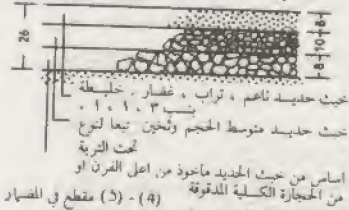 26
8
10
8
خبث حديد ناعم ، تراب ، غضار . خليطة
بنسب ٣ ، ١ ، ١ ،
خبث حديد متوسط الحجم وثخين تبعا لنوع
تحت التربة
اساس من خبث الحديد ماخوذ من اعلى الفرن او
من الحجارة الكلسية المدقوقة
(4) - (5) مقطع في المضمار